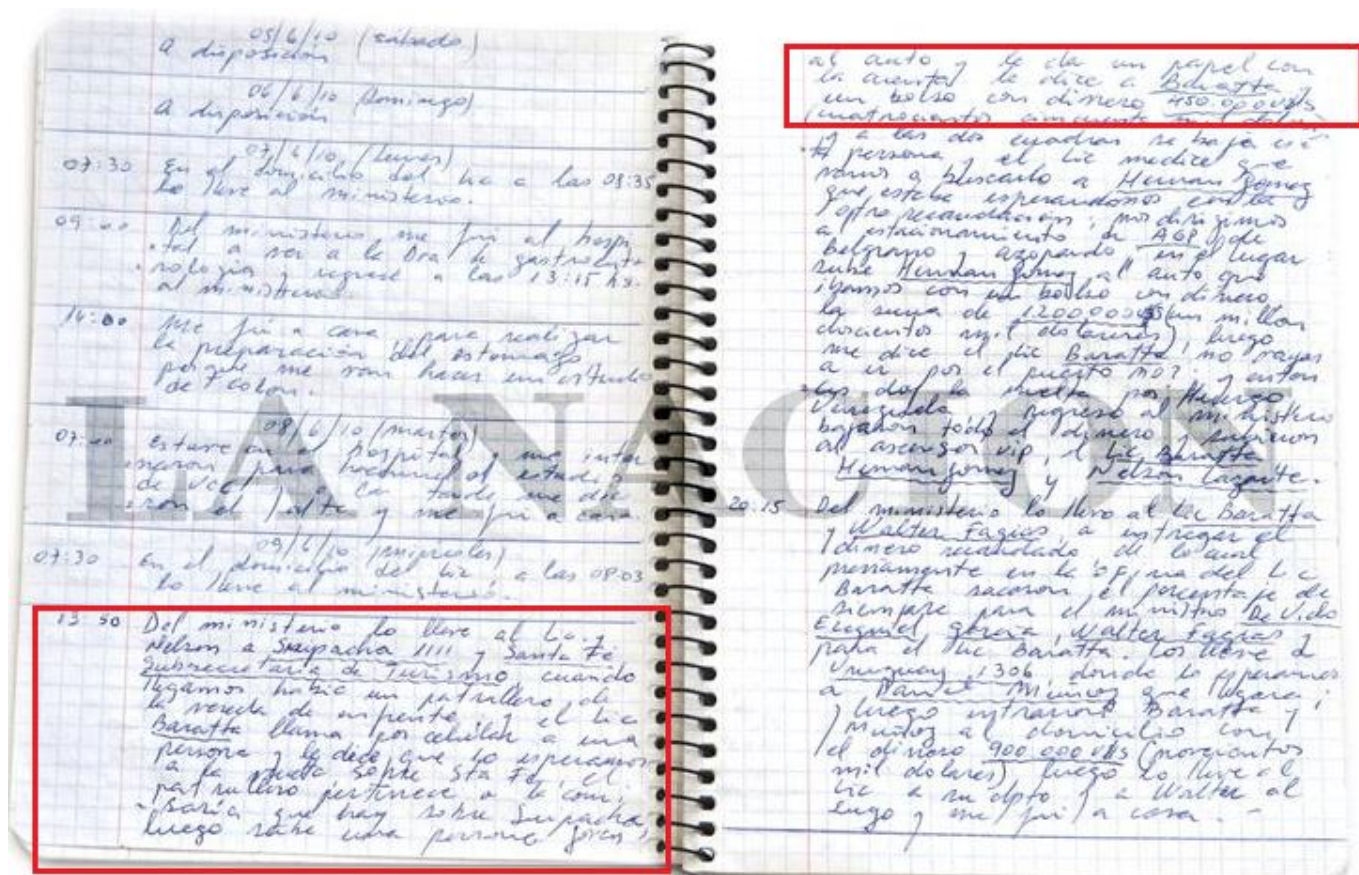 05/6/10 (sabado)
A disposición
06/6/10 (Domingo)
A disposición
07/6/10 (Lunes)
07:30 En el domicilio del Lic a las 08:35
lo lleve al ministerio.
09:00 Del ministerio me fui al hospi
tal a ver a la Dra de gastroente
rologia y regrese a las 13:15 hs.
al ministerio.
14:00 Me fui a casa para realizar
la preparación del estomago
porque me van hacer un estudio
de colon.
08/6/10 (martes)
07:00 Estuve en el hospital y me inter
naron para hacerme el estudio
de VCC a la tarde me die
ron el alta y me fui a casa.
09/6/10 (miercoles)
07:30 En el domicilio del Lic, a las 08:03
lo lleve al ministerio.
13:50 Del ministerio lo lleve al Lic. y
Nelson a Suipacha 1111 y Santa Fé
Subsecretaria de Turismo cuando
llegamos habia un patrullero de
la vereda de enfrente, y el Lic
Baratta llama por celular a una
persona y le dice que lo esperamos
a la vuelta sobre Sta Fe, el
patrullero pertenece a la comi
saría que hay sobre Suipacha,
luego sube una persona joven
al auto y le da un papel con
la cuenta le dice a Baratta y
un bolso con dinero 450.000 U$S
(cuatrocientos cincuenta mil dolares)
y a las dos cuadras se baja esta
persona y el Lic me dice que
vamos a buscarlo a Hernan Gomez
que estaba esperandonos con la
otra recaudación; nos dirigimos
a estacionamiento de AGP de
Belgrano y azopardo en el lugar
sube Hernan Gomez al auto que
ibamos con un bolso con dinero
la suma de 1200000U$S (un millon
doscientos mil dolares), luego
me dice el Lic Baratta no vayas
a ir por el puerto no? y enton
ces doy la vuelta por Huergo
Venezuela y regreso al ministerio
bajaron todo el dinero y subieron
al ascensor vip, el Lic Baratta
Hernan Gomez y Nelson Lazarte.
20.15 Del ministerio lo llevo al Lic Baratta
y Walter Fagias, a entregar el
dinero recaudado de lo cual
previamente en la oficina del Lic
Baratta sacaron el porcentaje de
siempre para el ministro De Vido
Ezequiel García, Walter Fagias y
para el Lic Baratta. Los lleve a
Uruguay 1306, donde lo esperamos
a Daniel Muñoz que llegara;
y luego entraron Baratta y
Muñoz al domicilio con
el dinero 900.000 U$S (novecientos
mil dolares), luego lo lleve al
Lic a su dpto y a Walter al
suyo y me fui a casa. -
LA NACION